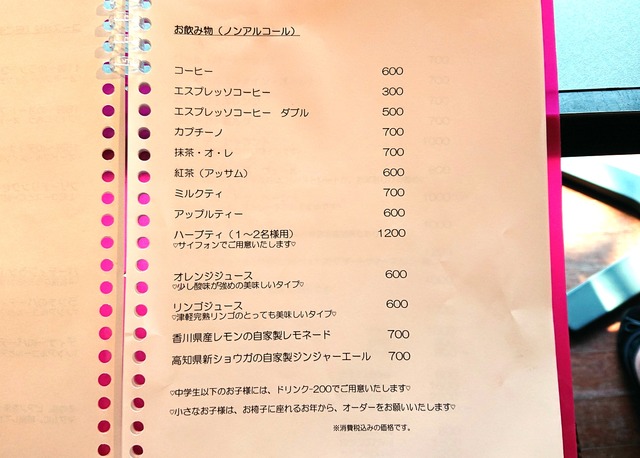 お飲み物（ノンアルコール）
コーヒー 600
エスプレッソコーヒー 300
エスプレッソコーヒー ダブル 500
カプチーノ 700
抹茶・オ・レ 700
紅茶（アッサム） 600
ミルクティ 700
アップルティー 600
ハーブティ（１～２名様用） 1200
♡サイフォンでご用意いたします♡
オレンジジュース 600
♡少し酸味が強めの美味しいタイプ♡
リンゴジュース 600
♡津軽完熟リンゴのとっても美味しいタイプ♡
香川県産レモンの自家製レモネード 700
高知県新ショウガの自家製ジンジャーエール 700
♡中学生以下のお子様には、ドリンク-200でご用意いたします♡
♡小さなお子様は、お椅子に座れるお年から、オーダーをお願いいたします♡
※消費税込みの価格です。